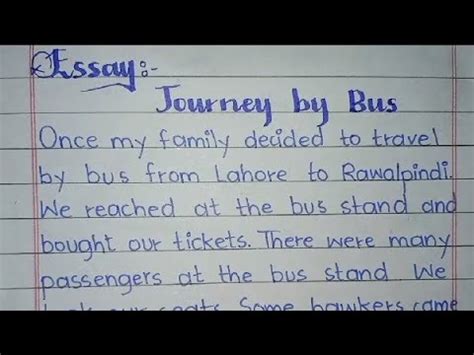 Essay:-
Journey by Bus
Once my family decided to travel
by bus from Lahore to Rawalpindi.
We reached at the bus stand and
bought our tickets. There were many
passengers at the bus stand We
our seats. Some hawkers came